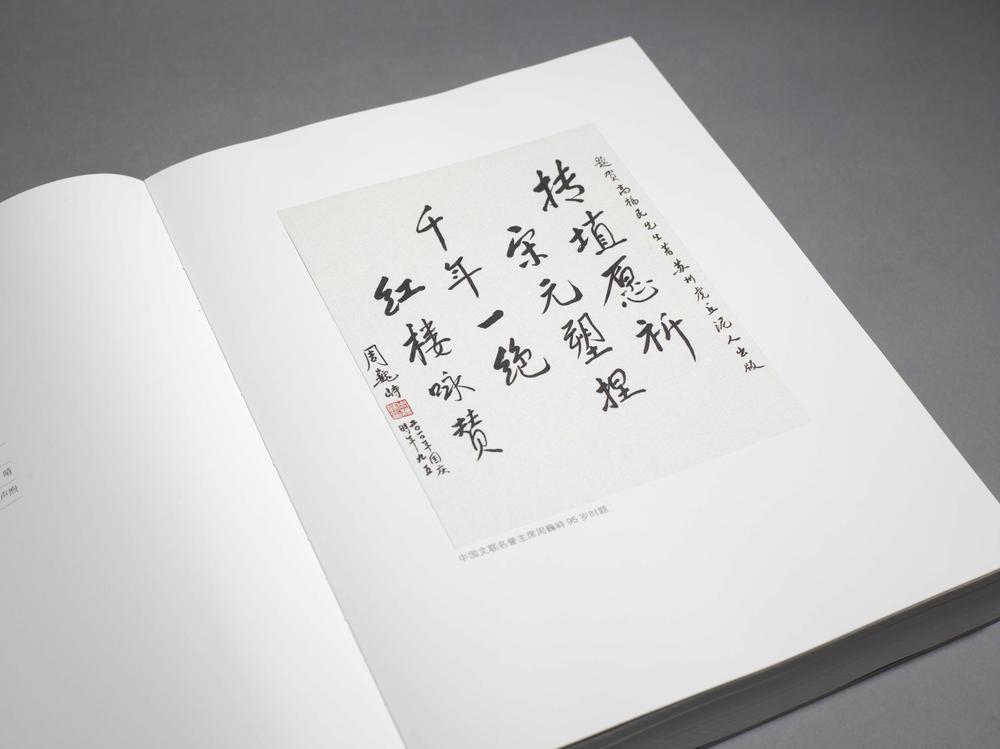 题贺高福民先生著苏州虎丘泥人出版
抟埴愿祈
宋元塑捏
千年一绝
红楼咏赞
周巍峙
二〇一〇年国庆
时年九五
中国文联名誉主席周巍峙 95 岁时题
晴
声煦